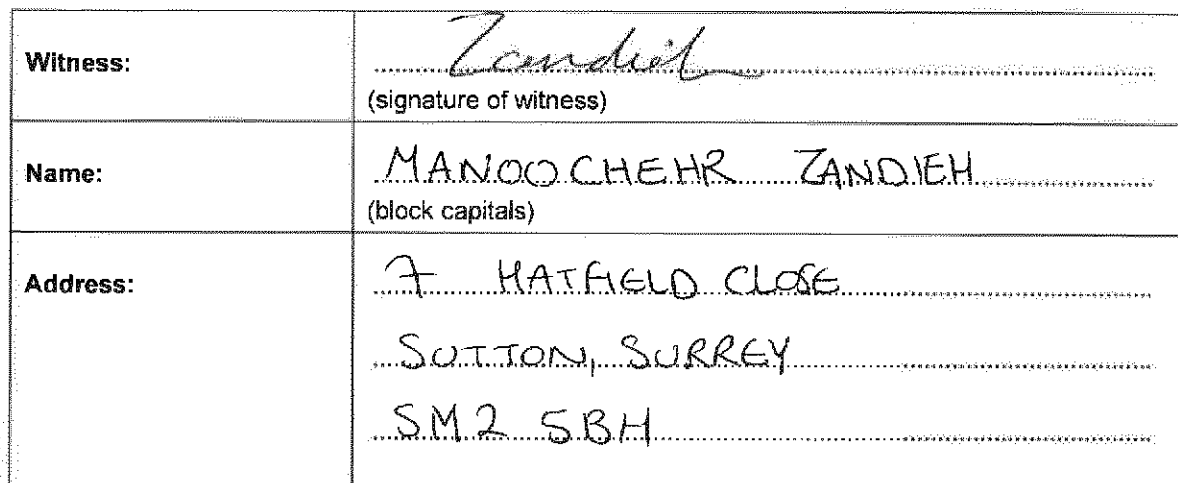 Witness: Zandieh
(signature of witness)
Name: MANOOCHEHR ZANDIEH
(block capitals)
Address: 7 HATFIELD CLOSE
SUTTON, SURREY
SM2 5BH